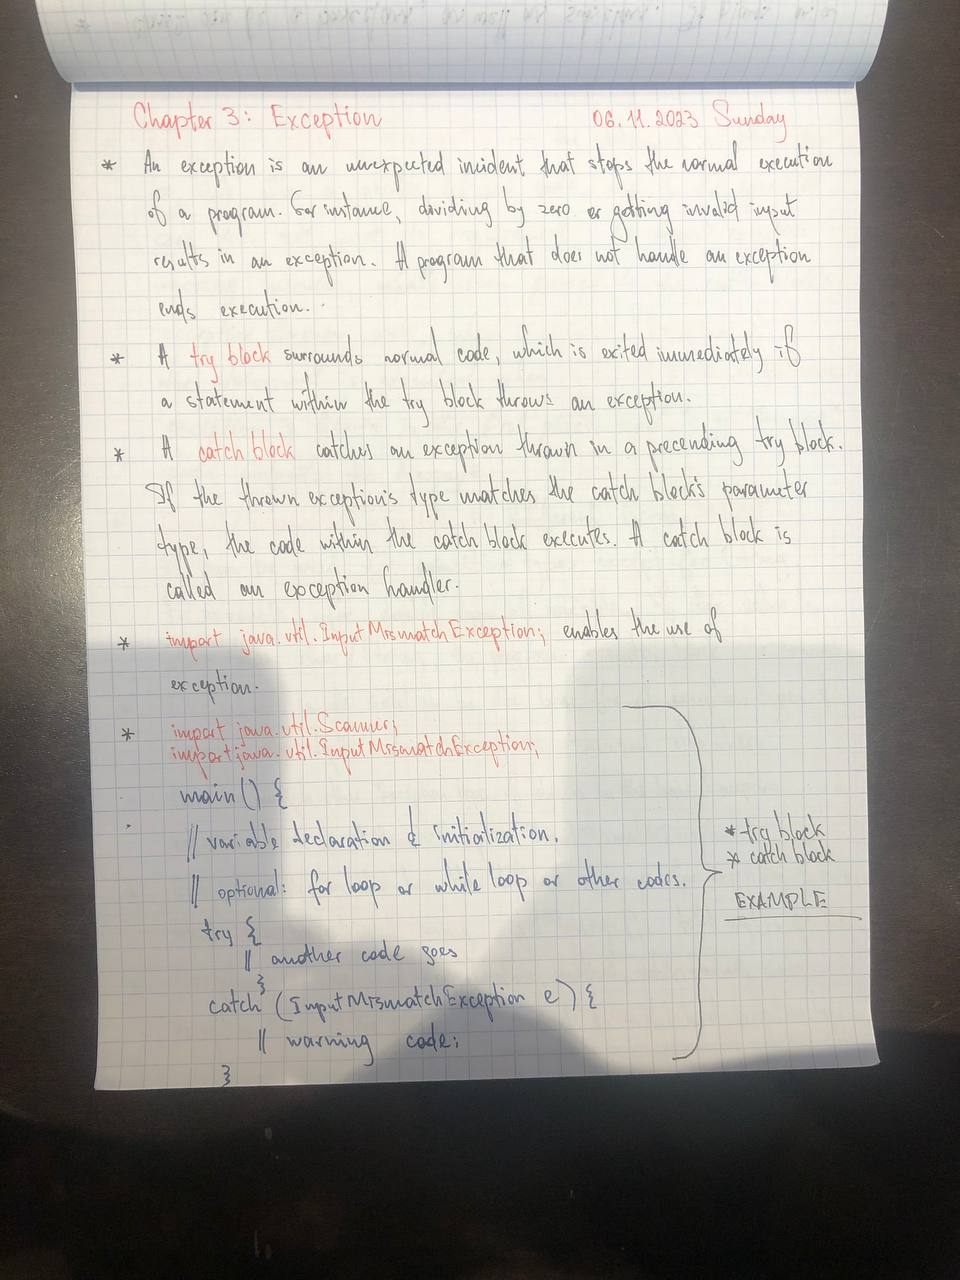 Chapter 3: Exception 06.11.2023 Sunday
* An exception is an unexpected incident that stops the normal execution
of a program. For instance, dividing by zero or getting invalid input
results in an exception. A program that does not handle an exception
ends execution.
* A try block surrounds normal code, which is exited immediately if
a statement within the try block throws an exception.
* A catch block catches an exception thrown in a precending try block.
If the thrown exception's type matches the catch block's parameter
type, the code within the catch block executes. A catch block is
called an exception handler.
* import java.util.InputMismatchException; enables the use of
exception.
* import java.util.Scanner;
import java.util.InputMismatchException;
main() {
// variable declaration & initialization.
// optional: for loop or while loop or other codes.
try {
// another code goes
}
catch (InputMismatchException e) {
// warning code;
}
* try block
* catch block
EXAMPLE